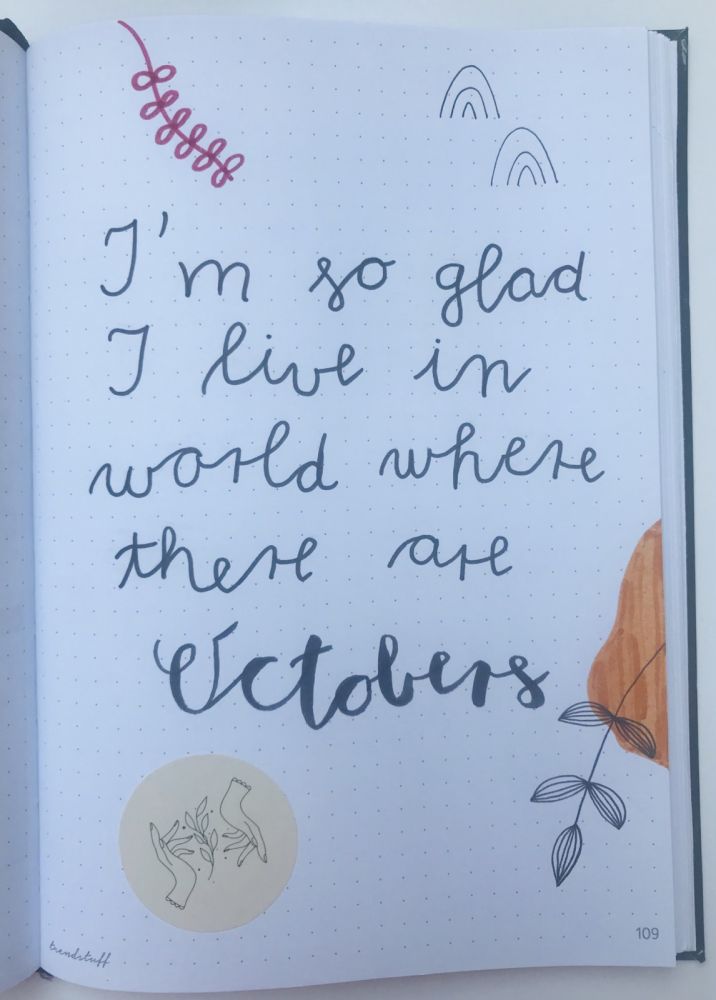 I'm so glad
I live in
world where
there are
Octobers
109
trendstuff